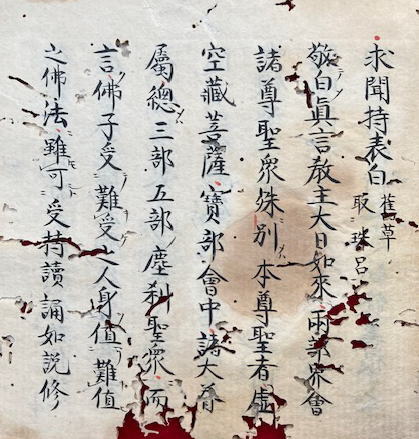 求聞持表白 舊草
取珠呂
敬白真言教主大日如來兩部界會
諸尊聖衆殊別本尊聖者虛
空藏菩薩寶部會中諸大眷
屬總三部五部塵刹聖衆而
言佛子受難受之人身值難值
之佛法雖可受持讀誦如說修